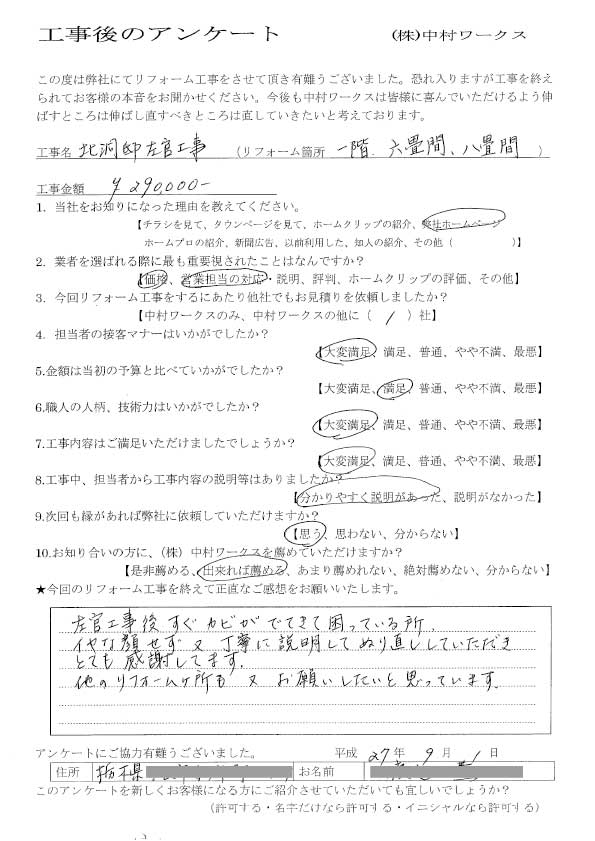 工事後のアンケート　(株)中村ワークス
この度は弊社にてリフォーム工事をさせて頂き有難うございました。恐れ入りますが工事を終え
られてお客様の本音をお聞かせください。今後も中村ワークスは皆様に喜んでいただけるよう伸
ばすところは伸ばし直すべきところは直していきたいと考えております。
工事名 北洞邸左官工事 （リフォーム箇所 一階 六畳間、八畳間 ）
工事金額 ¥290,000-
1. 当社をお知りになった理由を教えてください。
【チラシを見て、タウンページを見て、ホームクリップの紹介、弊社ホームページ
ホームプロの紹介、新聞広告、以前利用した、知人の紹介、その他（　　　）】
2. 業者を選ばれる際に最も重要視されたことはなんですか？
【価格、営業担当の対応・説明、評判、ホームクリップの評価、その他】
3. 今回リフォーム工事をするにあたり他社でもお見積りを依頼しましたか？
【中村ワークスのみ、中村ワークスの他に（ 1 ）社】
4. 担当者の接客マナーはいかがでしたか？
【大変満足、満足、普通、やや不満、最悪】
5.金額は当初の予算と比べていかがでしたか？
【大変満足、満足、普通、やや不満、最悪】
6.職人の人柄、技術力はいかがでしたか？
【大変満足、満足、普通、やや不満、最悪】
7.工事内容はご満足いただけましたでしょうか？
【大変満足、満足、普通、やや不満、最悪】
8.工事中、担当者から工事内容の説明等はありましたか？
【分かりやすく説明があった、説明がなかった】
9.次回も縁があれば弊社に依頼していただけますか？
【思う、思わない、分からない】
10.お知り合いの方に、（株）中村ワークスを薦めていただけますか？
【是非薦める、出来れば薦める、あまり薦めれない、絶対薦めない、分からない】
★今回のリフォーム工事を終えて正直なご感想をお願いいたします。
左官工事後すぐカビがでてきて困っている所、
イヤな顔せず又丁寧に説明してぬり直ししていただき
とても感謝してます。
他のリフォームヶ所も又お願いしたいと思っています。
アンケートにご協力有難うございました。　平成 27年 9月 1日
住所 栃木県　お名前
このアンケートを新しくお客様になる方にご紹介させていただいても宜しいでしょうか？
（許可する・名字だけなら許可する・イニシャルなら許可する）